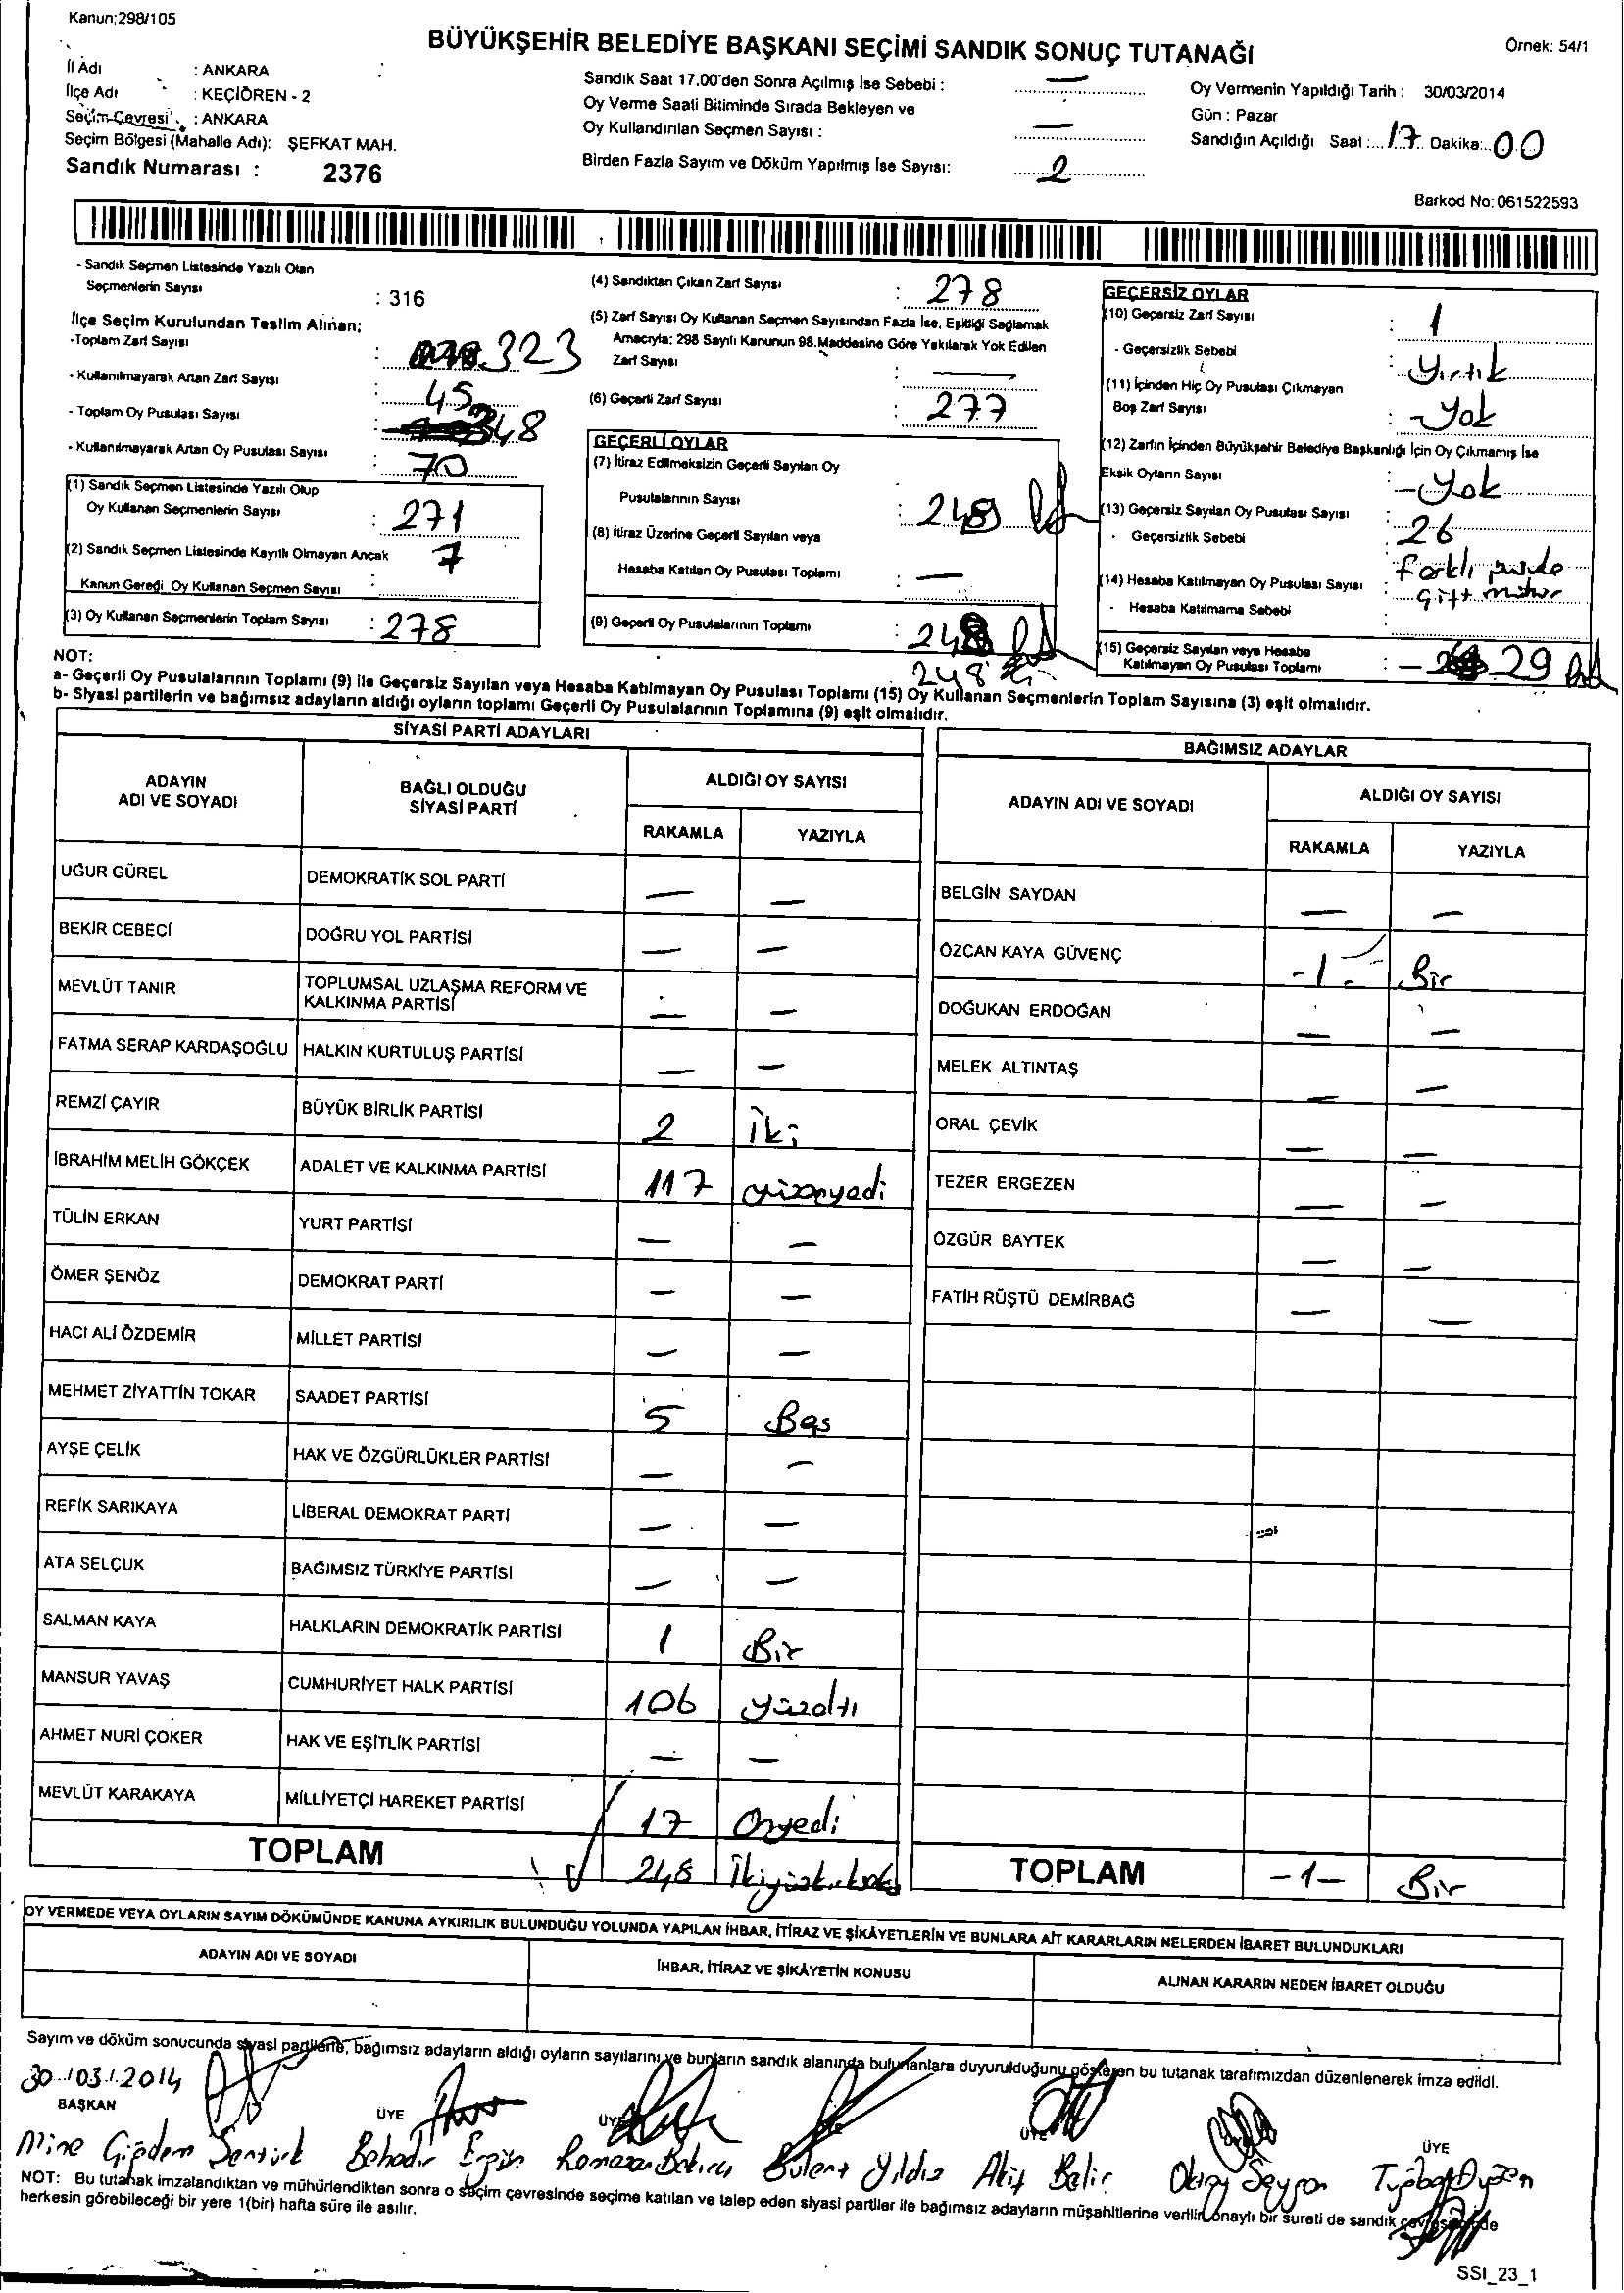 Kanun;298/105
BÜYÜKŞEHİR BELEDİYE BAŞKANI SEÇİMİ SANDIK SONUÇ TUTANAĞI
Örnek: 54/1
İl Adı : ANKARA
İlçe Adı : KEÇİÖREN - 2
Seçim Çevresi : ANKARA
Seçim Bölgesi (Mahalle Adı): ŞEFKAT MAH.
Sandık Numarası : 2376
Sandık Saat 17.00'den Sonra Açılmış İse Sebebi : —
Oy Verme Saati Bitiminde Sırada Bekleyen ve
Oy Kullandırılan Seçmen Sayısı : —
Birden Fazla Sayım ve Döküm Yapılmış İse Sayısı: 2
Oy Vermenin Yapıldığı Tarih : 30/03/2014
Gün : Pazar
Sandığın Açıldığı Saat : 17 Dakika: 00
Barkod No: 061522593
- Sandık Seçmen Listesinde Yazılı Olan
Seçmenlerin Sayısı : 316
İlçe Seçim Kurulundan Teslim Alınan;
-Toplam Zarf Sayısı : 323
- Kullanılmayarak Artan Zarf Sayısı : 45
- Toplam Oy Pusulası Sayısı : 348
- Kullanılmayarak Artan Oy Pusulası Sayısı : 70
(1) Sandık Seçmen Listesinde Yazılı Olup
Oy Kullanan Seçmenlerin Sayısı : 271
(2) Sandık Seçmen Listesinde Kayıtlı Olmayan Ancak
Kanun Gereği Oy Kullanan Seçmen Sayısı : 7
(3) Oy Kullanan Seçmenlerin Toplam Sayısı : 278
(4) Sandıktan Çıkan Zarf Sayısı : 278
(5) Zarf Sayısı Oy Kullanan Seçmen Sayısından Fazla İse, Eşitliği Sağlamak
Amacıyla; 298 Sayılı Kanunun 98.Maddesine Göre Yakılarak Yok Edilen
Zarf Sayısı : —
(6) Geçerli Zarf Sayısı : 277
GEÇERLİ OYLAR
(7) İtiraz Edilmeksizin Geçerli Sayılan Oy
Pusulalarının Sayısı : 248
(8) İtiraz Üzerine Geçerli Sayılan veya
Hesaba Katılan Oy Pusulası Toplamı : —
(9) Geçerli Oy Pusulalarının Toplamı : 248
248
GEÇERSİZ OYLAR
(10) Geçersiz Zarf Sayısı : 1
- Geçersizlik Sebebi : Yırtık
(11) İçinden Hiç Oy Pusulası Çıkmayan
Boş Zarf Sayısı : - Yok
(12) Zarfın İçinden Büyükşehir Belediye Başkanlığı İçin Oy Çıkmamış İse
Eksik Oyların Sayısı : - Yok
(13) Geçersiz Sayılan Oy Pusulası Sayısı : 26
- Geçersizlik Sebebi : farklı
(14) Hesaba Katılmayan Oy Pusulası Sayısı : çift mühür
- Hesaba Katılmama Sebebi
(15) Geçersiz Sayılan veya Hesaba
Katılmayan Oy Pusulası Toplamı : - 29
NOT:
a- Geçerli Oy Pusulalarının Toplamı (9) ile Geçersiz Sayılan veya Hesaba Katılmayan Oy Pusulası Toplamı (15) Oy Kullanan Seçmenlerin Toplam Sayısına (3) eşit olmalıdır.
b- Siyasi partilerin ve bağımsız adayların aldığı oyların toplamı Geçerli Oy Pusulalarının Toplamına (9) eşit olmalıdır.
SİYASİ PARTİ ADAYLARI
ADAYIN ADI VE SOYADI
BAĞLI OLDUĞU SİYASİ PARTİ
ALDIĞI OY SAYISI
RAKAMLA YAZIYLA
UĞUR GÜREL DEMOKRATİK SOL PARTİ — —
BEKİR CEBECİ DOĞRU YOL PARTİSİ — —
MEVLÜT TANIR TOPLUMSAL UZLAŞMA REFORM VE KALKINMA PARTİSİ — —
FATMA SERAP KARDAŞOĞLU HALKIN KURTULUŞ PARTİSİ — —
REMZİ ÇAYIR BÜYÜK BİRLİK PARTİSİ 2 İki
İBRAHİM MELİH GÖKÇEK ADALET VE KALKINMA PARTİSİ 117 yüzonyedi
TÜLİN ERKAN YURT PARTİSİ — —
ÖMER ŞENÖZ DEMOKRAT PARTİ — —
HACI ALİ ÖZDEMİR MİLLET PARTİSİ — —
MEHMET ZİYATTİN TOKAR SAADET PARTİSİ 5 Beş
AYŞE ÇELİK HAK VE ÖZGÜRLÜKLER PARTİSİ — —
REFİK SARIKAYA LİBERAL DEMOKRAT PARTİ — —
ATA SELÇUK BAĞIMSIZ TÜRKİYE PARTİSİ — —
SALMAN KAYA HALKLARIN DEMOKRATİK PARTİSİ 1 Bir
MANSUR YAVAŞ CUMHURİYET HALK PARTİSİ 106 yüzaltı
AHMET NURİ ÇOKER HAK VE EŞİTLİK PARTİSİ — —
MEVLÜT KARAKAYA MİLLİYETÇİ HAREKET PARTİSİ 17 Onyedi
TOPLAM 248
BAĞIMSIZ ADAYLAR
ADAYIN ADI VE SOYADI
ALDIĞI OY SAYISI
RAKAMLA YAZIYLA
BELGİN SAYDAN — —
ÖZCAN KAYA GÜVENÇ -1- Bir
DOĞUKAN ERDOĞAN — —
MELEK ALTINTAŞ — —
ORAL ÇEVİK — —
TEZER ERGEZEN — —
ÖZGÜR BAYTEK — —
FATİH RÜŞTÜ DEMİRBAĞ — —
TOPLAM -1- Bir
OY VERMEDE VEYA OYLARIN SAYIM DÖKÜMÜNDE KANUNA AYKIRILIK BULUNDUĞU YOLUNDA YAPILAN İHBAR, İTİRAZ VE ŞİKÂYETLERİN VE BUNLARA AİT KARARLARIN NELERDEN İBARET BULUNDUKLARI
ADAYIN ADI VE SOYADI İHBAR, İTİRAZ VE ŞİKÂYETİN KONUSU ALINAN KARARIN NEDEN İBARET OLDUĞU
Sayım ve döküm sonucunda siyasi partilerle, bağımsız adayların aldığı oyların sayılarını ve bunların sandık alanında bulunanlara duyurulduğunu gösteren bu tutanak tarafımızdan düzenlenerek imza edildi.
30/03/2014
BAŞKAN ÜYE ÜYE ÜYE ÜYE
Mine Çiğdem Şentürk Bahadır Ramazan Bülent Yıldız Akif Oktay
NOT: Bu tutanak imzalandıktan ve mühürlendikten sonra o seçim çevresinde seçime katılan ve talep eden siyasi partiler ile bağımsız adayların müşahitlerine verilir. Onaylı bir sureti de sandık çevresinde
herkesin görebileceği bir yere 1(bir) hafta süre ile asılır.
SSI_23_1